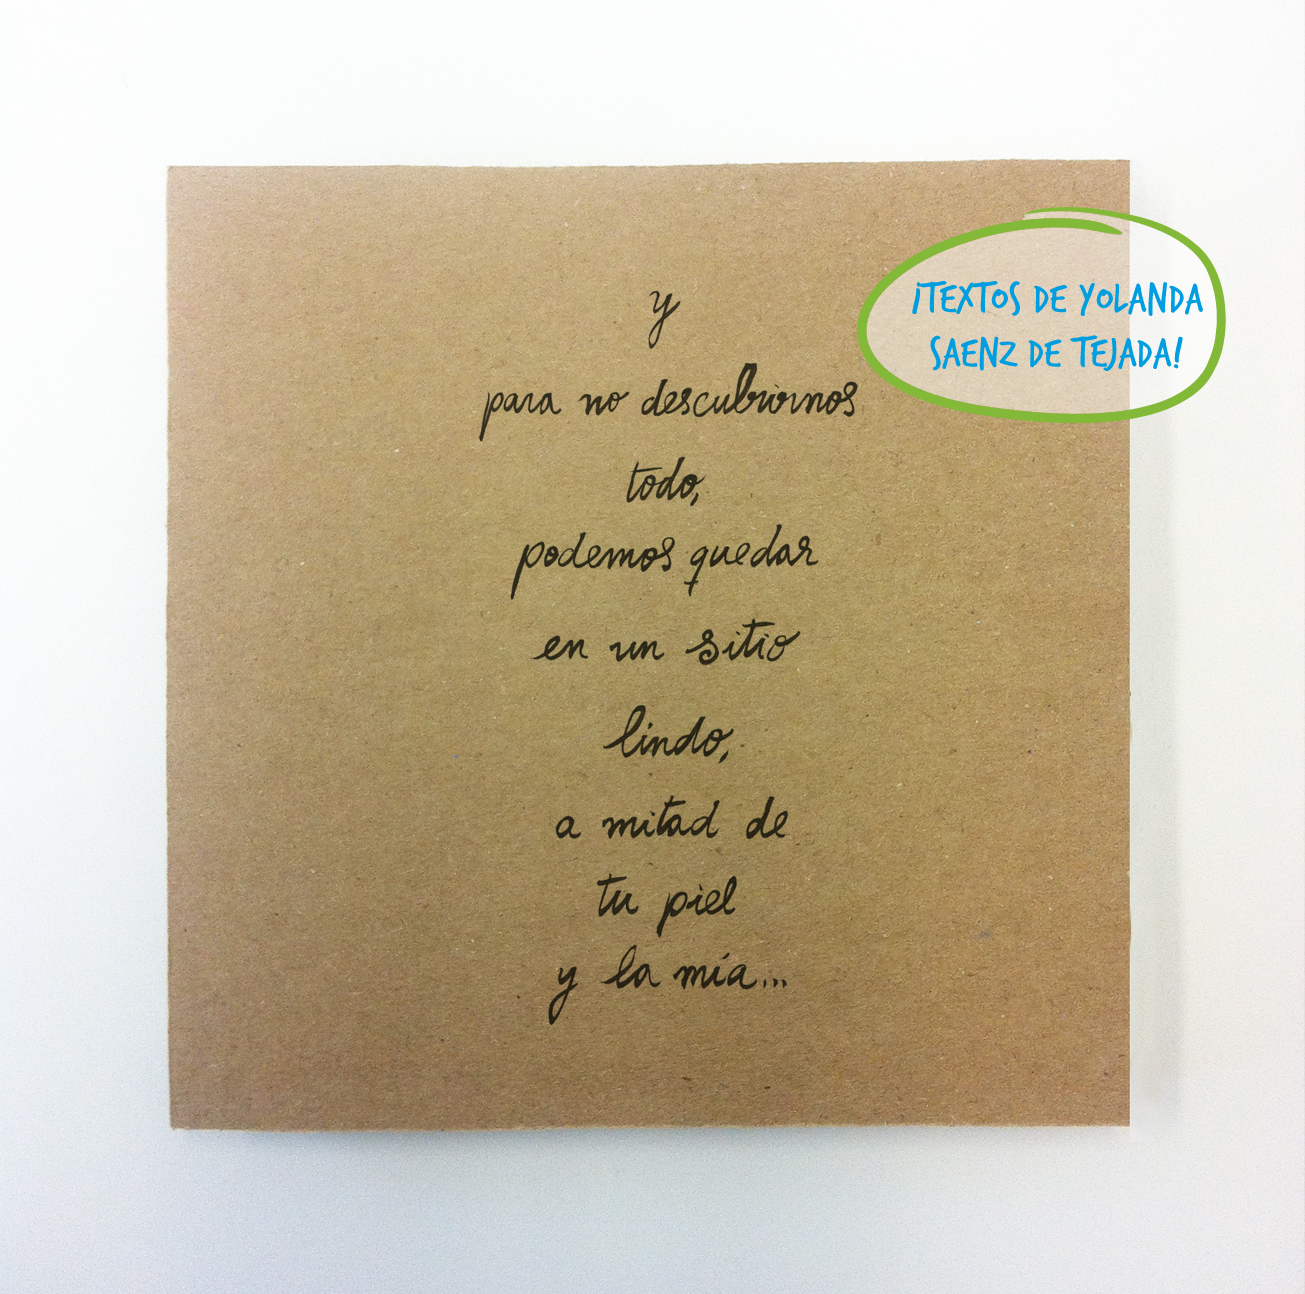 y
para no descubrirnos
todo,
podemos quedar
en un sitio
lindo,
a mitad de
tu piel
y la mía...
¡TEXTOS DE YOLANDA
SAENZ DE TEJADA!